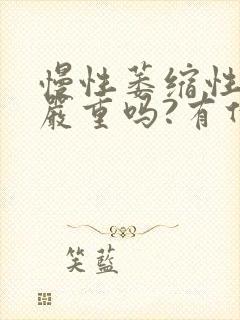 慢性萎缩性
严重吗?有什
笑蓝